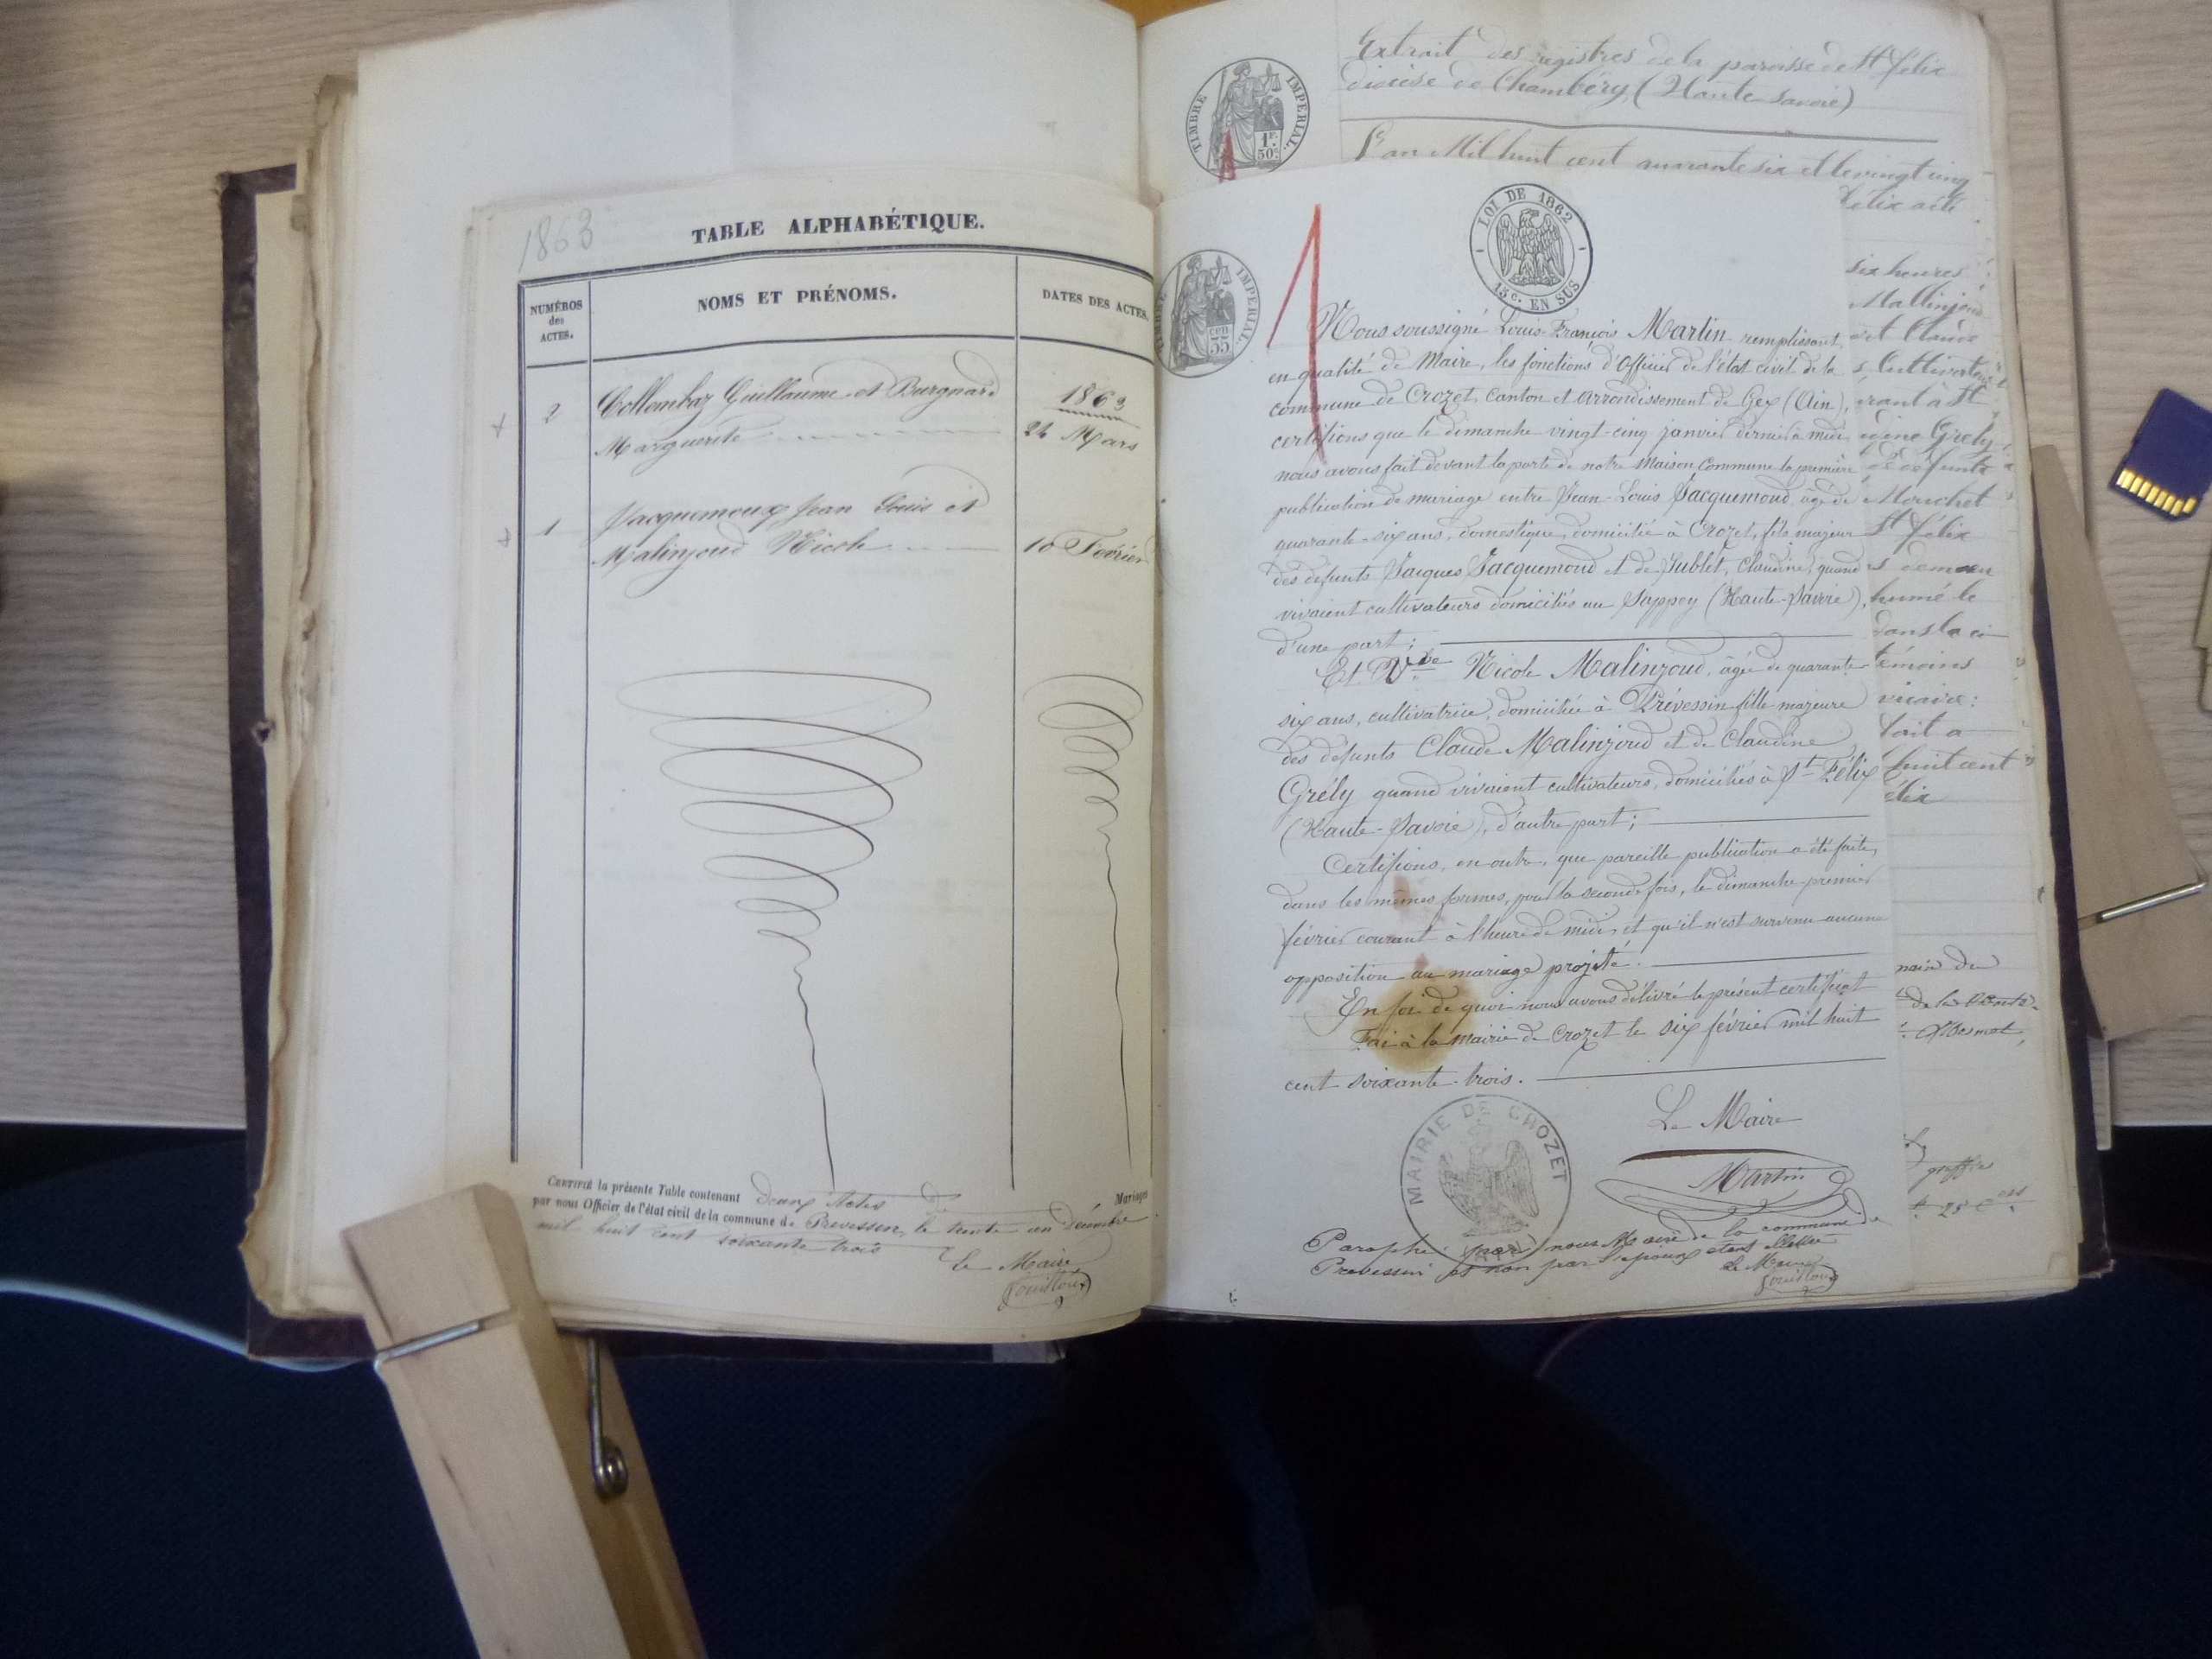 1863
TABLE ALPHABÉTIQUE.
NUMÉROS
des
ACTES.
NOMS ET PRÉNOMS.
DATES DES ACTES.
2
Collombaz Guillaume et Burgnard
Marguerite
1863
24 Mars
1
Jacquemoux Jean Louis et
Malinjoud Nicole
10 Février
CERTIFIÉ la présente Table contenant deux Actes de Mariages
par nous Officier de l'état civil de la commune de Prevessin, le trente un Décembre
mil huit cent soixante trois
Le Maire
Extrait des registres de la paroisse de St félix
diocèse de Chambéry, (Haute Savoie)
TIMBRE IMPERIAL.
1F.
50c.
L'an Mil huit cent quarante six et le vingt cinq
félix a été
LOI DE 1862
15c. EN SUS
TIMBRE IMPERIAL.
cen
55
Nous soussigné Louis-François Martin remplissant,
en qualité de Maire, les fonctions d'Officier de l'état civil de la
commune de Crozet, Canton et arrondissement de Gex (Ain),
certifions que le dimanche vingt-cinq janvier dernier à midi
nous avons fait devant la porte de notre Maison Commune la première
publication de mariage entre Jean-Louis Jacquemoud, âgé de
quarante-six ans, domestique, domicilié à Crozet, fils majeur
des défunts Jacques Jacquemoud et de Jublet, Claudine, quand
vivaient cultivateurs domiciliés au Sappey (Haute-Savoie),
d'une part;
Et Nicole Malinjoud, âgée de quarante
six ans, cultivatrice, domiciliée à Prévessin fille majeure
des défunts Claude Malinjoud et de Claudine
Grély quand vivaient cultivateurs, domiciliés à St Félix
(Haute-Savoie), d'autre part;
Certifions, en outre, que pareille publication a été faite,
dans les mêmes formes, pour la seconde fois, le dimanche premier
février courant à l'heure de midi, et qu'il n'est survenu aucune
opposition au mariage projeté.
En foi de quoi nous avons délivré le présent certificat
Fai à la mairie de Crozet le six février mil huit
cent soixante-trois.
Le Maire
Martin
MAIRIE DE CROZET
(AIN)
Paraphé par nous Maire de la commune de
Prevessin et non par l'epoux etant illettré
Le Maire
six heures
Mallinjoud
et Claude
Cultivateurs
vivant à St
Grely
défunte
Mouchet
St félix
demeu
humé le
dans le ci
témoins
vicaire:
fait a
huit cent
félix
de la
greffier
25